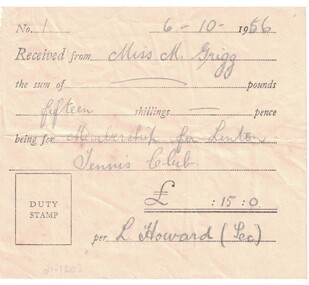 No. 1 6-10-1956
Received from Miss M. Grigg
the sum of — pounds
fifteen shillings — pence
being for Membership for Linton
Tennis Club
£ : 15 : 0
DUTY
STAMP
per L Howard (Sec)